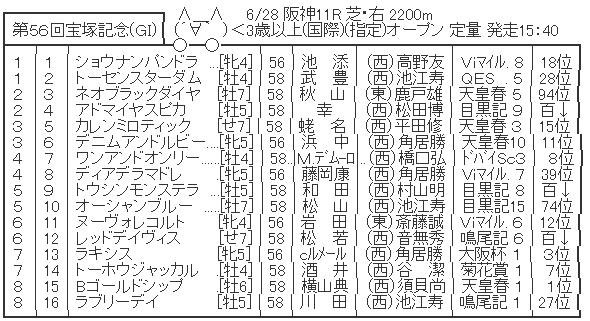 第56回宝塚記念(GI) 6/28 阪神11R 芝・右 2200m
(▽) <3歳以上(国際)(指定)オープン 定量 発走15:40
1 1 ショウナンパンドラ [牝4] 56 池添 (西)高野友 Viマイル. 8 18位
1 2 トーセンスターダム [牡4] 58 武豊 (西)池江寿 QES . 5 28位
2 3 ネオブラックダイヤ [牡7] 58 秋山 (東)鹿戸雄 天皇春 5 94位
2 4 アドマイヤスピカ [牡5] 58 幸 (西)松田博 目黒記 9 百↓
3 5 カレンミロティック [せ7] 58 蛯名 (西)平田修 天皇春 3 15位
3 6 デニムアンドルビー...[牝5] 56 浜中 (西)角居勝 天皇春10 11位
4 7 ワンアンドオンリー.....[牡4] 58 M.デムーロ...(西)橋口弘 ドバイSc3 8位
4 8 ディアデラマドレ [牝5] 56 藤岡康 (西)角居勝 Viマイル. 7 39位
5 9 トウシンモンステラ [牡5] 58 和田 (西)村山明 目黒記 8 百↓
5 10 オーシャンブルー .....[牡7] 58 松山 (西)池江寿 目黒記15 74位
6 11 ヌーヴォレコルト [牝4] 56 岩田 (東)斎藤誠 Viマイル. 6 12位
6 12 レッドデイヴィス [せ7] 58 松若 (西)音無秀 鳴尾記 6 百↓
7 13 ラキシス [牝5] 56 cルメール (西)角居勝 大阪杯 1 3位
7 14 トーホウジャッカル [牡4] 58 酒井 (西)谷潔 菊花賞 1 7位
8 15 Bゴールドシップ [牡6] 58 横山典 (西)須貝尚 天皇春 1 1位
8 16 ラブリーデイ [牡5] 58 川田 (西)池江寿 鳴尾記 1 27位